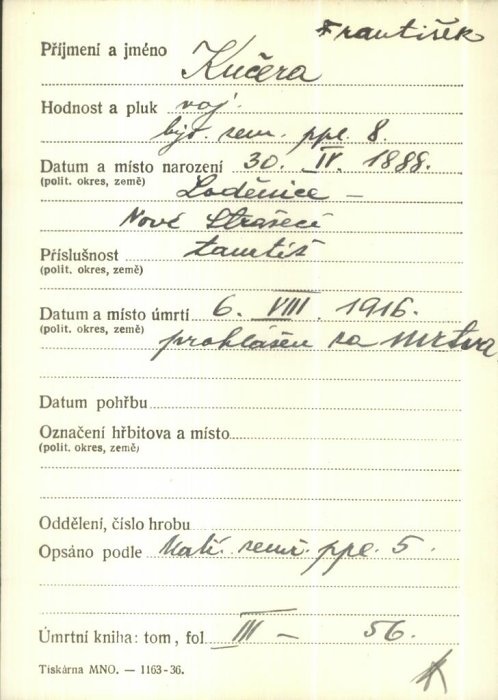 František
Příjmení a jméno Kučera
Hodnost a pluk voj.
býv. zem. ppl. 8.
Datum a místo narození 30. IV. 1888.
(polit. okres, země)
Loděnice -
Nové Strašecí
Příslušnost tamtéž
(polit. okres, země)
Datum a místo úmrtí 6. VIII. 1916.
(polit. okres, země)
prohlášen za mrtva
Datum pohřbu
Označení hřbitova a místo
(polit. okres, země)
Oddělení, číslo hrobu
Opsáno podle ppl. 5.
Úmrtní kniha: tom, fol. III - 56.
Tiskárna MNO. — 1163-36.